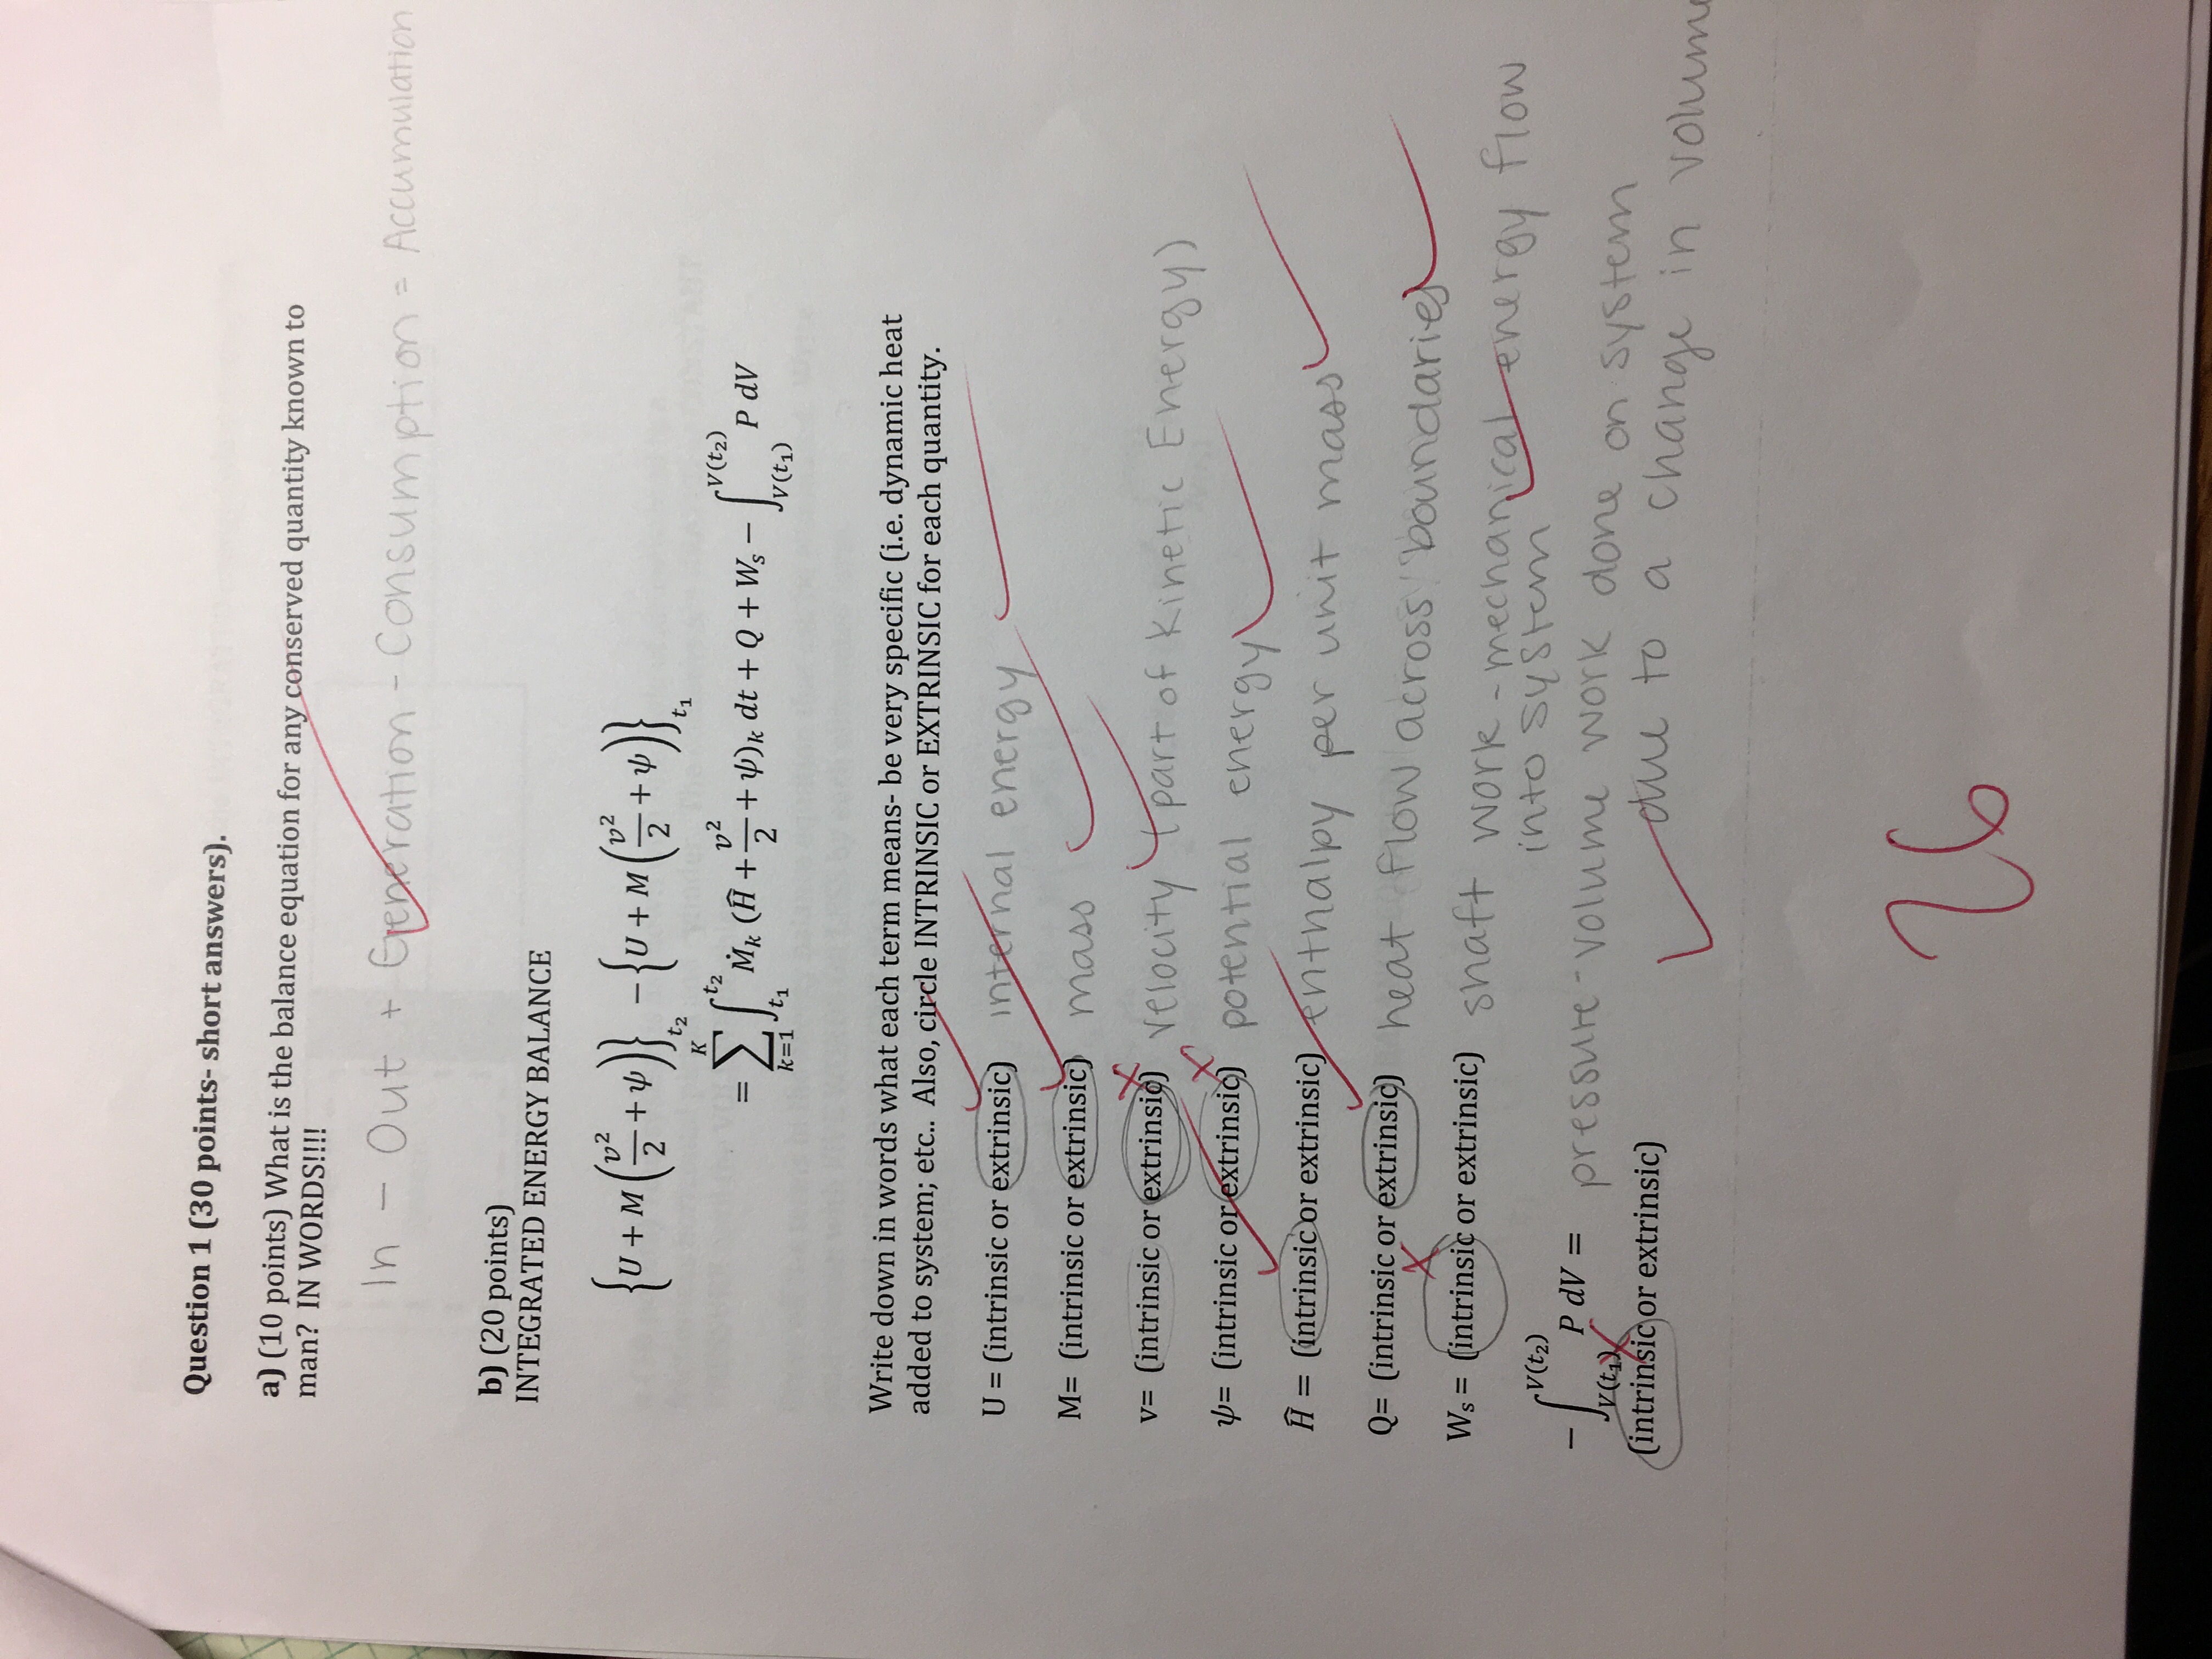 Question 1 (30 points- short answers).
a) (10 points) What is the balance equation for any conserved quantity known to
man? IN WORDS!!!!
In - Out + Generation - Consumption = Accumulation
b) (20 points)
INTEGRATED ENERGY BALANCE
{U + M(v²/2 + ψ)}t₂ − {U + M(v²/2 + ψ)}t₁
= ∑ₖ₌₁ᴷ ∫t₁^t₂ Ṁₖ (Ĥ + v²/2 + ψ)ₖ dt + Q + Wₛ − ∫V(t₁)^V(t₂) P dV
Write down in words what each term means- be very specific (i.e. dynamic heat
added to system; etc.. Also, circle INTRINSIC or EXTRINSIC for each quantity.
U = (intrinsic or extrinsic) internal energy
M= (intrinsic or extrinsic) mass
v= (intrinsic or extrinsic) velocity (part of Kinetic Energy)
ψ= (intrinsic or extrinsic) potential energy
Ĥ = (intrinsic or extrinsic) enthalpy per unit mass
Q= (intrinsic or extrinsic) heat flow across boundaries
Wₛ = (intrinsic or extrinsic) shaft work - mechanical energy flow
into system
−∫V(t₁)^V(t₂) P dV = pressure-volume work done on system
(intrinsic or extrinsic) due to a change in volume
26